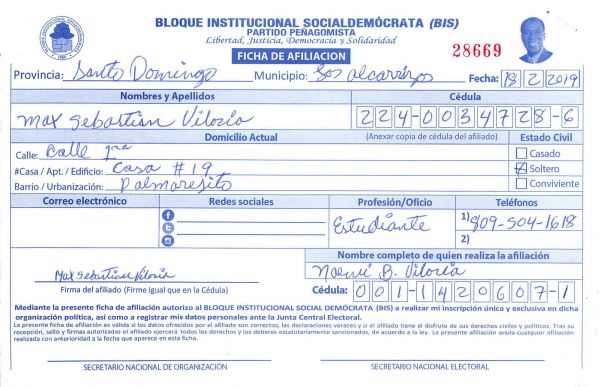 BLOQUE INSTITUCIONAL SOCIALDEMÓCRATA (BIS)
PARTIDO PEÑAGOMISTA
Libertad, Justicia, Democracia y Solidaridad
FICHA DE AFILIACION
28669
Provincia: Santo Domingo Municipio: Los alcarrizos Fecha: 18/2/2019
Nombres y Apellidos Cédula
Max Sebastian Viloria 224-0034728-6
Domicilio Actual (Anexar copia de cédula del afiliado) Estado Civil
Calle: Calle 1ra Casado
#Casa / Apt. / Edificio: Casa #19 Soltero
Barrio / Urbanización: Palmarejito Conviviente
Correo electrónico Redes sociales Profesión/Oficio Teléfonos
Estudiante 1) 809-504-1618
2)
Nombre completo de quien realiza la afiliación
Max Sebastian Viloria Noemí B. Viloria
Firma del afiliado (Firme igual que en la Cédula) Cédula: 001-1420607-1
Mediante la presente ficha de afiliación autorizo al BLOQUE INSTITUCIONAL SOCIAL DEMÓCRATA (BIS) a realizar mi inscripción única y exclusiva en dicha
organización política, así como a registrar mis datos personales ante la Junta Central Electoral.
La presente ficha de afiliación es válida si los datos ofrecidos por el afiliado son correctos, las declaraciones veraces y si el afiliado tiene el disfrute de sus derechos civiles y políticos. Tras su
recepción, sello y firmas autorizadas el afiliado ejercerá todos los derechos y los deberes estatutariamente sancionados, de acuerdo a la ley. La presente afiliación anula cualquier afiliación
realizada con anterioridad a la fecha que aparece en esta ficha.
SECRETARIO NACIONAL DE ORGANIZACIÓN SECRETARIO NACIONAL ELECTORAL